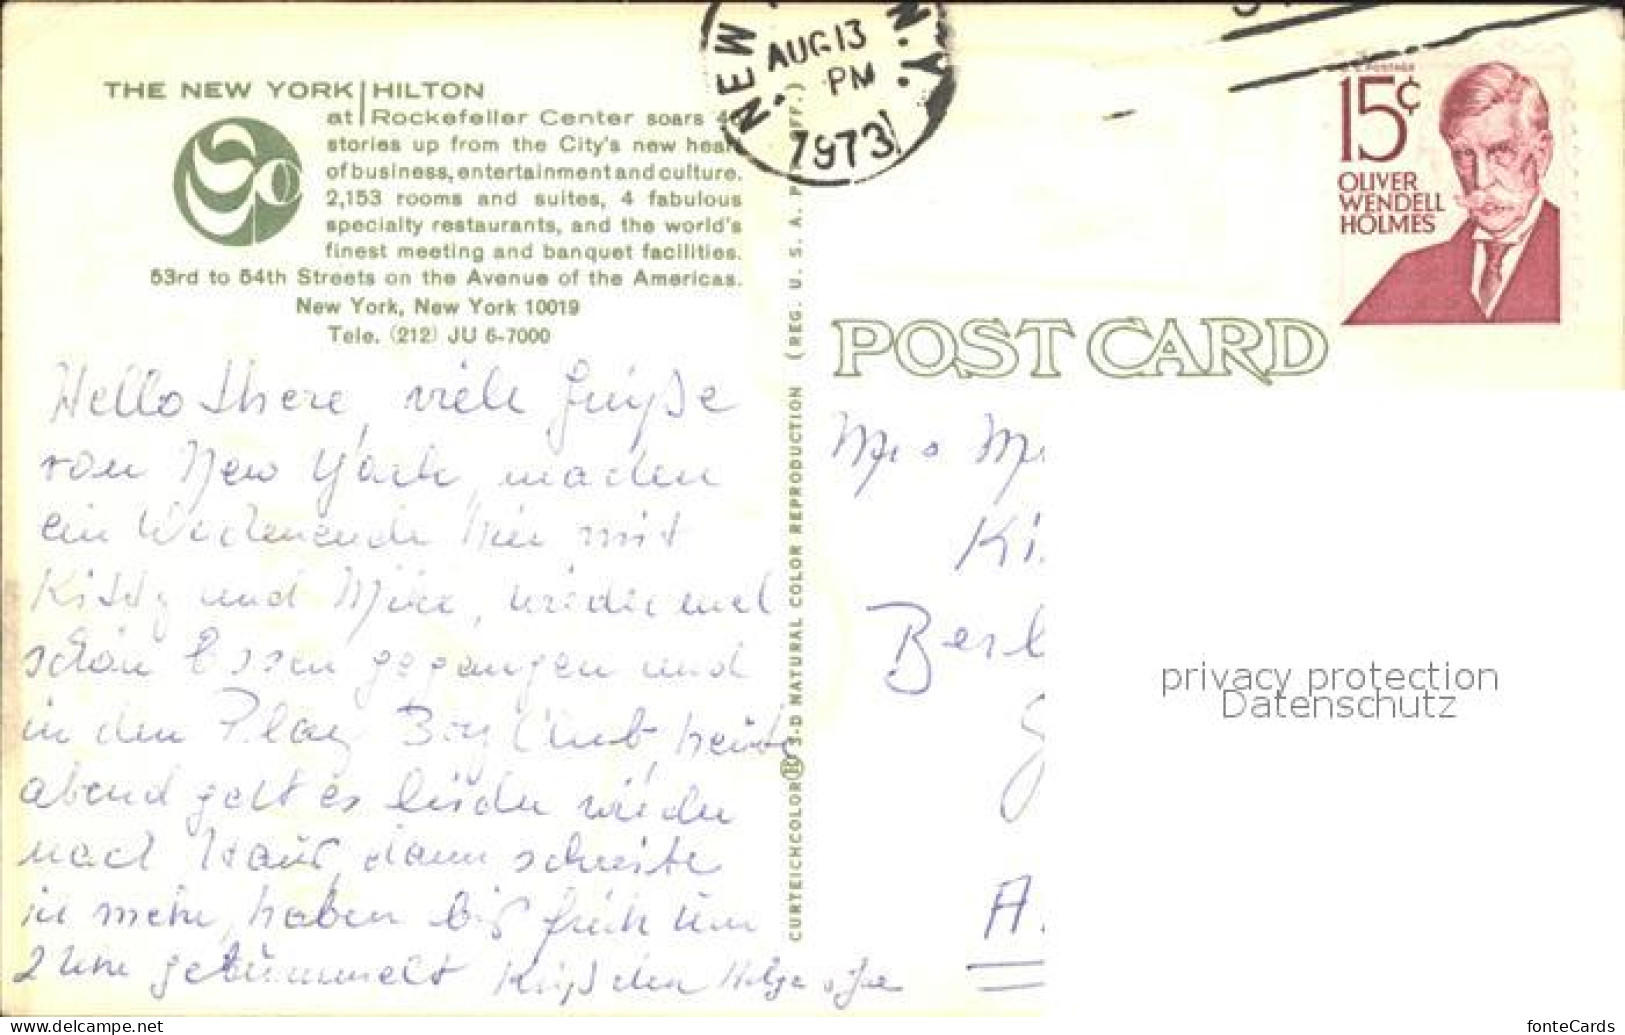 THE NEW YORK HILTON
at Rockefeller Center soars 4
stories up from the City's new heart
of business, entertainment and culture.
2,153 rooms and suites, 4 fabulous
specialty restaurants, and the world's
finest meeting and banquet facilities.
53rd to 54th Streets on the Avenue of the Americas.
New York, New York 10019
Tele. (212) JU 6-7000
Hello there, viele Grüße
von New York, machen
ein Wochenende hier mit
Kitty und Mike, wieder mal
schön Essen gegangen und
in den Play Boy Club heute
abend geht es leider wieder
nach Haus, dann schreibe
ich mehr, haben bis früh um
2 Uhr gebummelt Küßchen Helga + Joe
CURTEICHCOLOR® 3-D NATURAL COLOR REPRODUCTION (REG. U. S. A. PAT. OFF.)
NEW N.Y.
AUG 13
PM
1973
15¢
POSTAGE
OLIVER
WENDELL
HOLMES
POST CARD
Mr + Mr
Ki
Berl
A.
privacy protection
Datenschutz
www.delcampe.net
fonteCards